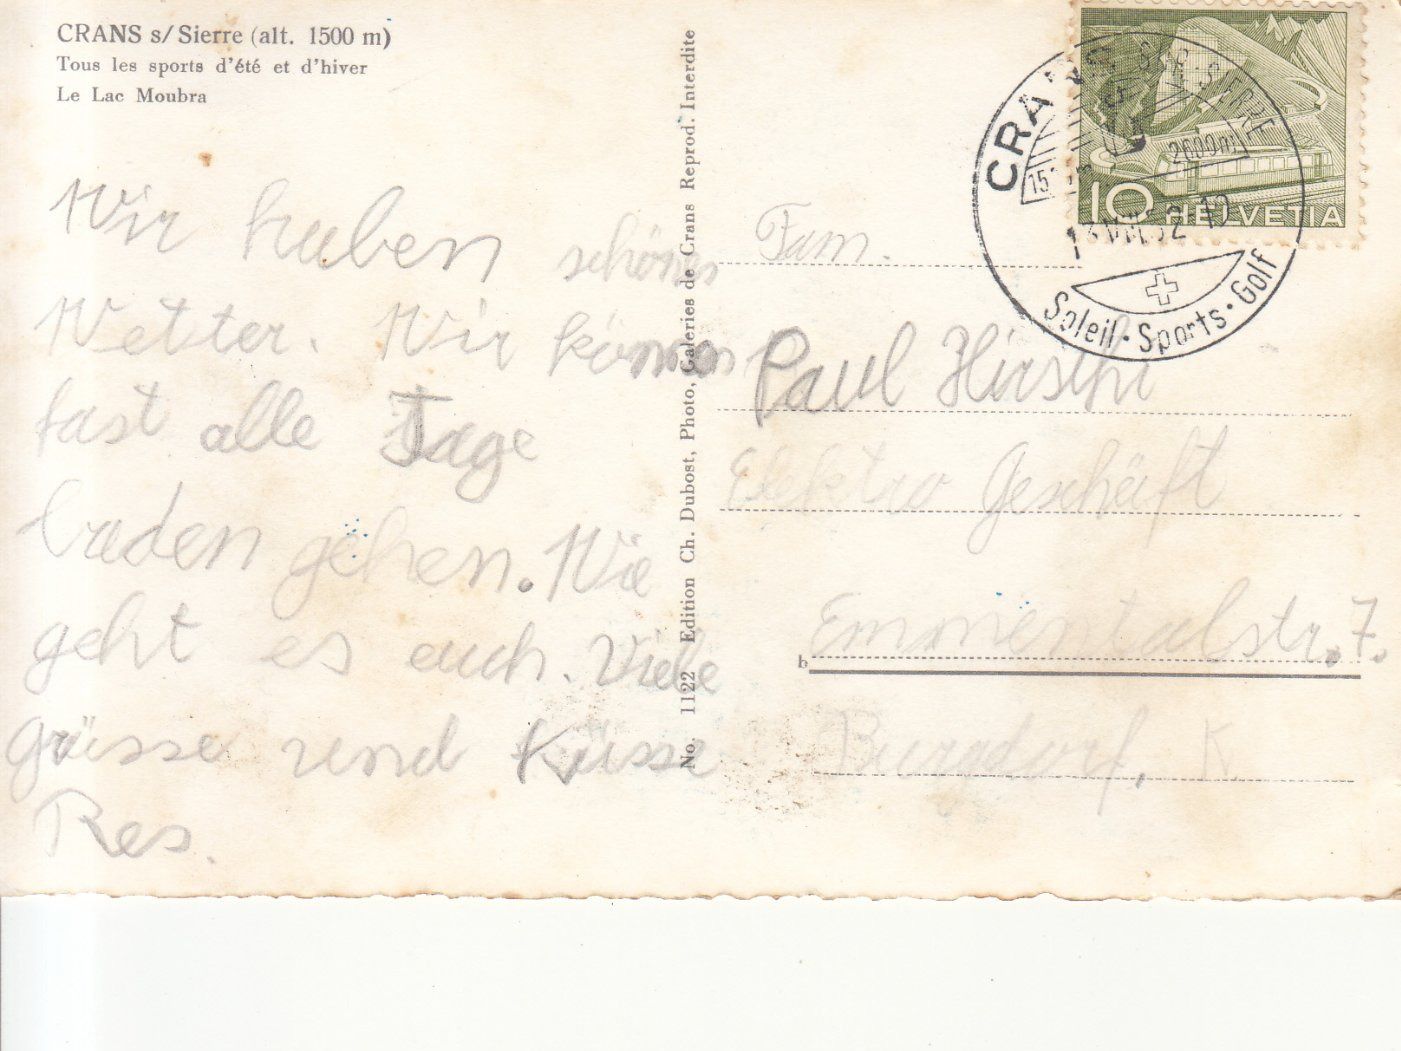 CRANS s/Sierre (alt. 1500 m)
Tous les sports d'été et d'hiver
Le Lac Moubra
Wir haben schönes
Wetter. Wir können
fast alle Tage
baden gehen. Wie
geht es euch. Viele
Grüsse und Küsse
Res.
No. 1122 Edition Ch. Dubost, Photo, Galeries de Crans Reprod. Interdite
CRANS SUR SIERRE
2000m
Soleil · Sports · Golf
10 HELVETIA
Fam.
Paul Hirschi
Elektro Geschäft
Emmentalstr. 7.
b
Burgdorf, K